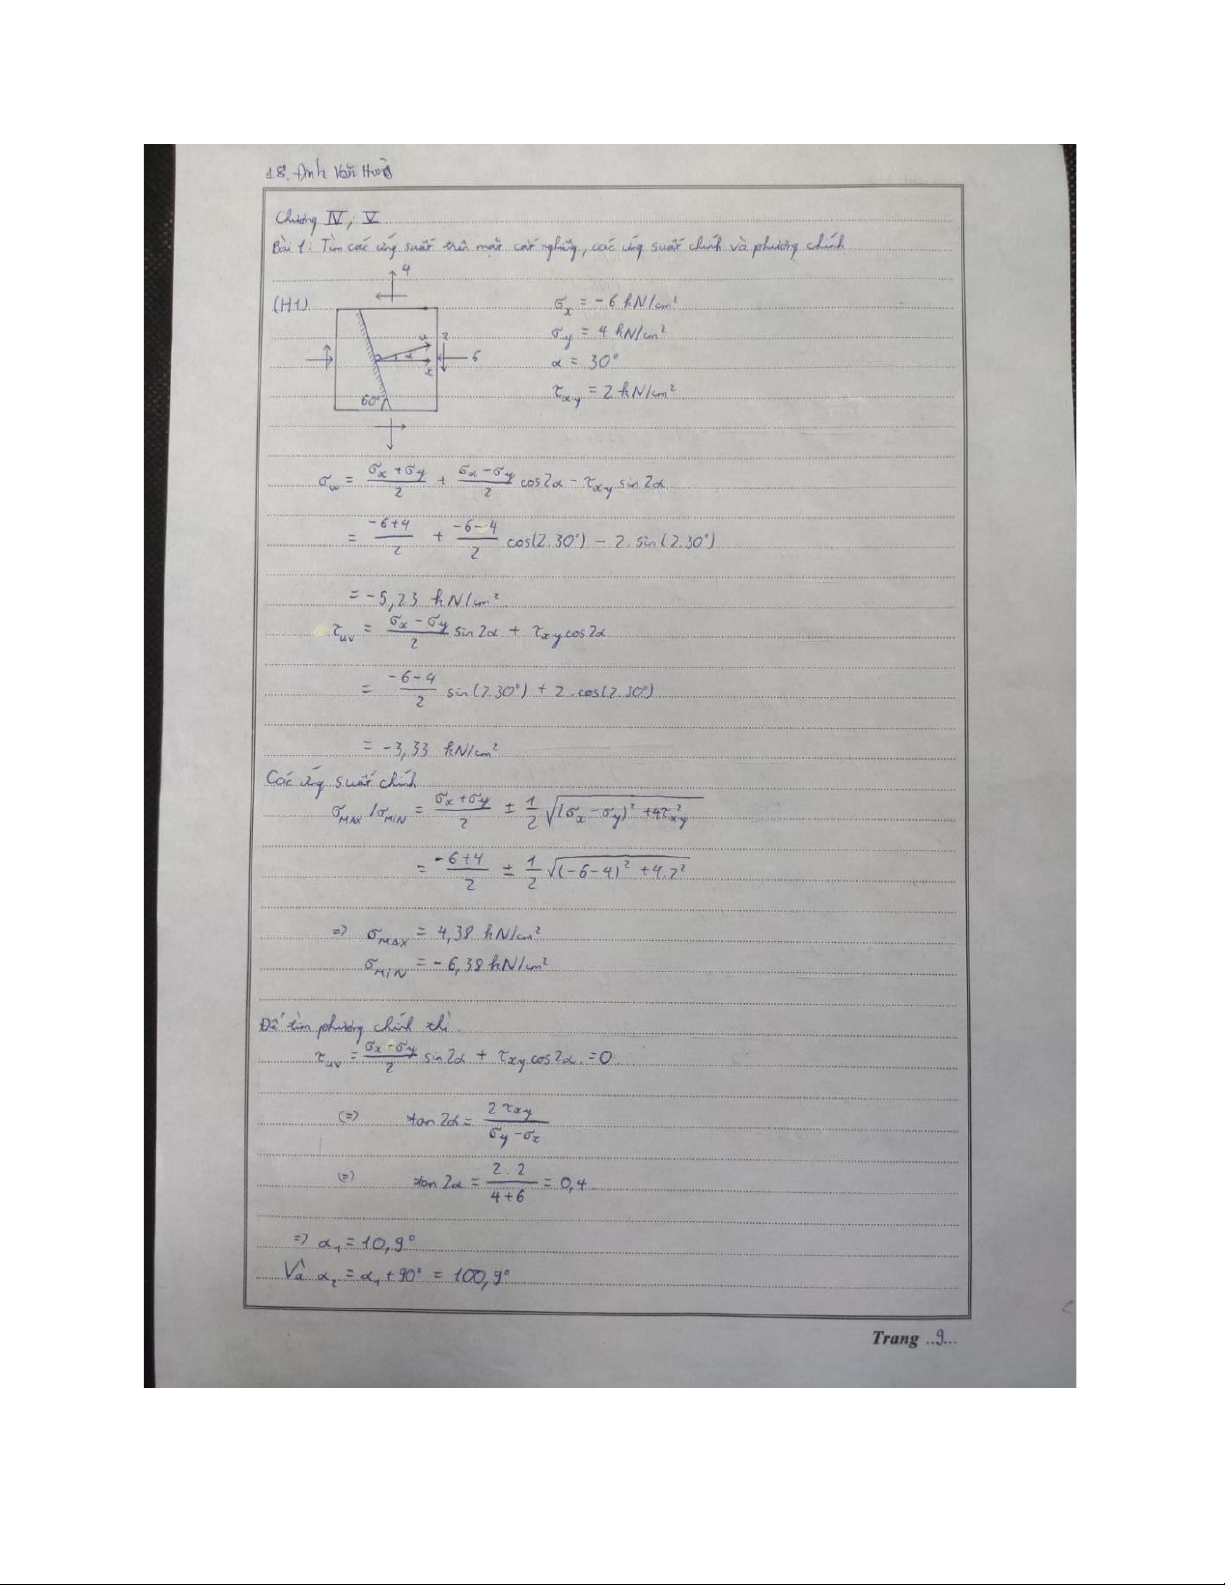 18. Đinh Văn
Chương IV, V
Bài 1: Tìm các ứng suất trên mặt cắt nghiêng, các ứng suất chính và phương chính
4
(H1)
u
2
α
6
x
60°
σx = -6 kN/cm²
σy = 4 kN/cm²
α = 30°
τxy = 2 kN/cm²
σu = (σx + σy)/2 + (σx - σy)/2 cos2α - τxy sin2α
= (-6+4)/2 + (-6-4)/2 cos(2.30°) - 2.sin(2.30°)
= -5,23 kN/cm²
τuv = (σx - σy)/2 sin2α + τxy cos2α
= (-6-4)/2 sin(2.30°) + 2.cos(2.30°)
= -3,33 kN/cm²
Các ứng suất chính
σMAX/σMIN = (σx + σy)/2 ± 1/2 √((σx - σy)² + 4τ²xy)
= (-6+4)/2 ± 1/2 √((-6-4)² + 4.2²)
=> σMAX = 4,38 kN/cm²
σMIN = -6,38 kN/cm²
Để tìm phương chính thì
τuv = (σx - σy)/2 sin2α + τxy cos2α = 0
(=) tan2α = 2τxy/(σy - σx)
(=) tan2α = 2.2/(4+6) = 0,4
=> α1 = 10,9°
Và α2 = α1 + 90° = 100,9°
Trang ..9...